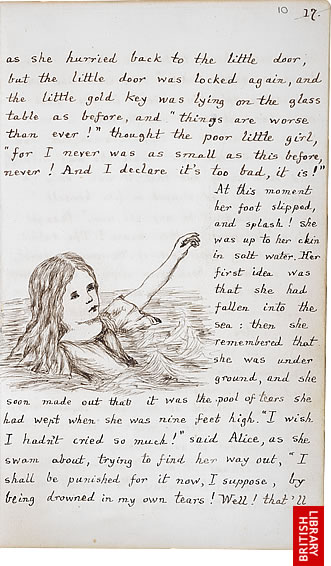 10 17.
as she hurried back to the little door,
but the little door was locked again, and
the little gold key was lying on the glass
table as before, and "things are worse
than ever!" thought the poor little girl,
"for I never was as small as this before,
never! And I declare it's too bad, it is!"
At this moment
her foot slipped,
and splash! she
was up to her chin
in salt water. Her
first idea was
that she had
fallen into the
sea: then she
remembered that
she was under
ground, and she
soon made out that it was the pool of tears she
had wept when she was nine feet high. "I wish
I hadn't cried so much!" said Alice, as she
swam about, trying to find her way out, "I
shall be punished for it now, I suppose, by
being drowned in my own tears! Well! that'll
BRITISH
LIBRARY